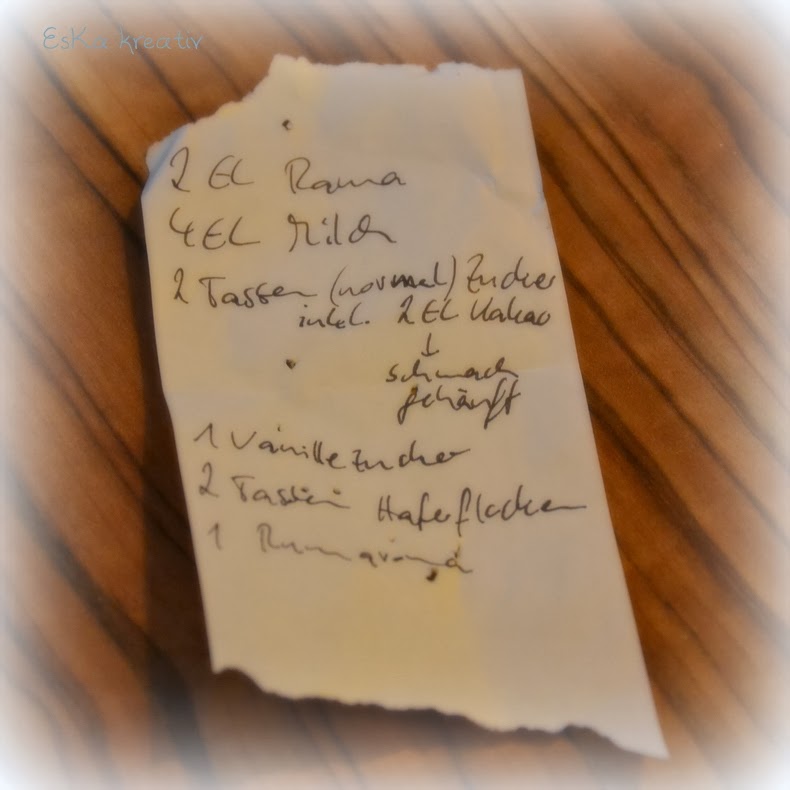 EsKa kreativ
2 EL Rama
4 EL Milch
2 Tassen (normal) Zucker
inkl. 2 EL Kakao
↓
schwach
gehäuft
1 Vanillezucker
2 Tassen Haferflocken
1 Rumaroma